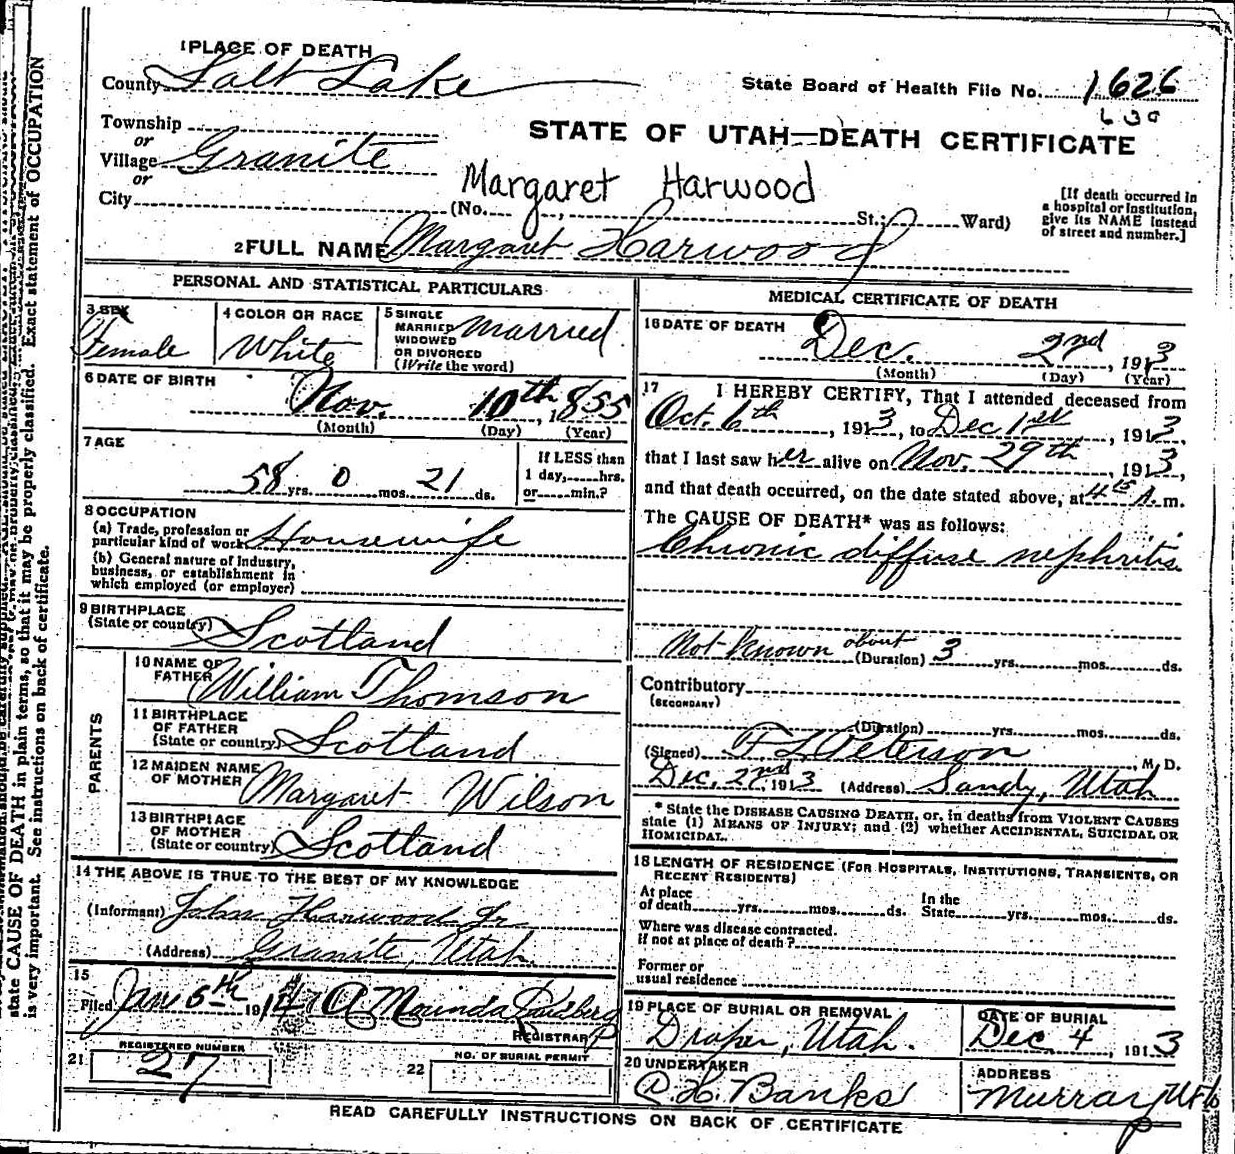 1 PLACE OF DEATH
County Salt Lake
State Board of Health File No. 1626
630
Township
or
Village Granite
or
City
STATE OF UTAH—DEATH CERTIFICATE
Margaret Harwood
(No. St.; Ward)
[If death occurred in
a hospital or institution,
give its NAME instead
of street and number.]
2 FULL NAME Margaret Harwood
PERSONAL AND STATISTICAL PARTICULARS
3 SEX
Female
4 COLOR OR RACE
White
5 SINGLE
MARRIED
WIDOWED
OR DIVORCED
(Write the word)
Married
6 DATE OF BIRTH
Nov. 10th, 1855
(Month) (Day) (Year)
7 AGE
58 yrs. 0 mos. 21 ds.
If LESS than
1 day, hrs.
or min.?
8 OCCUPATION
(a) Trade, profession or
particular kind of work Housewife
(b) General nature of industry,
business, or establishment in
which employed (or employer)
9 BIRTHPLACE
(State or country) Scotland
PARENTS
10 NAME OF
FATHER William Thomson
11 BIRTHPLACE
OF FATHER
(State or country) Scotland
12 MAIDEN NAME
OF MOTHER Margaret Wilson
13 BIRTHPLACE
OF MOTHER
(State or country) Scotland
14 THE ABOVE IS TRUE TO THE BEST OF MY KNOWLEDGE
(Informant) John Harwood Jr
(Address) Granite, Utah.
15
Filed Jan 5th 1914
REGISTRAR
REGISTERED NUMBER
21 27
NO. OF BURIAL PERMIT
22
MEDICAL CERTIFICATE OF DEATH
16 DATE OF DEATH
Dec. 2nd, 1913
(Month) (Day) (Year)
17 I HEREBY CERTIFY, That I attended deceased from
Oct. 6th, 1913, to Dec 1st, 1913,
that I last saw her alive on Nov. 29th, 1913,
and that death occurred, on the date stated above, at 4 15 A. m.
The CAUSE OF DEATH* was as follows:
Chronic diffuse nephritis
Not known about
(Duration) 3 yrs. mos. ds.
Contributory
(SECONDARY)
(Duration) yrs. mos. ds.
(Signed) F. L. Peterson, M. D.
Dec. 2nd, 1913 (Address) Sandy, Utah
* State the DISEASE CAUSING DEATH, or, in deaths from VIOLENT CAUSES
state (1) MEANS OF INJURY; and (2) whether ACCIDENTAL, SUICIDAL OR
HOMICIDAL.
18 LENGTH OF RESIDENCE (FOR HOSPITALS, INSTITUTIONS, TRANSIENTS, OR
RECENT RESIDENTS)
At place
of death yrs. mos. ds.
In the
State yrs. mos. ds.
Where was disease contracted.
if not at place of death?
Former or
usual residence
19 PLACE OF BURIAL OR REMOVAL
Draper, Utah.
DATE OF BURIAL
Dec. 4, 1913
20 UNDERTAKER
Banks
ADDRESS
Murray Utah
READ CAREFULLY INSTRUCTIONS ON BACK OF CERTIFICATE
state CAUSE OF DEATH in plain terms, so that it may be properly classified. Exact statement of OCCUPATION
is very important. See instructions on back of certificate.